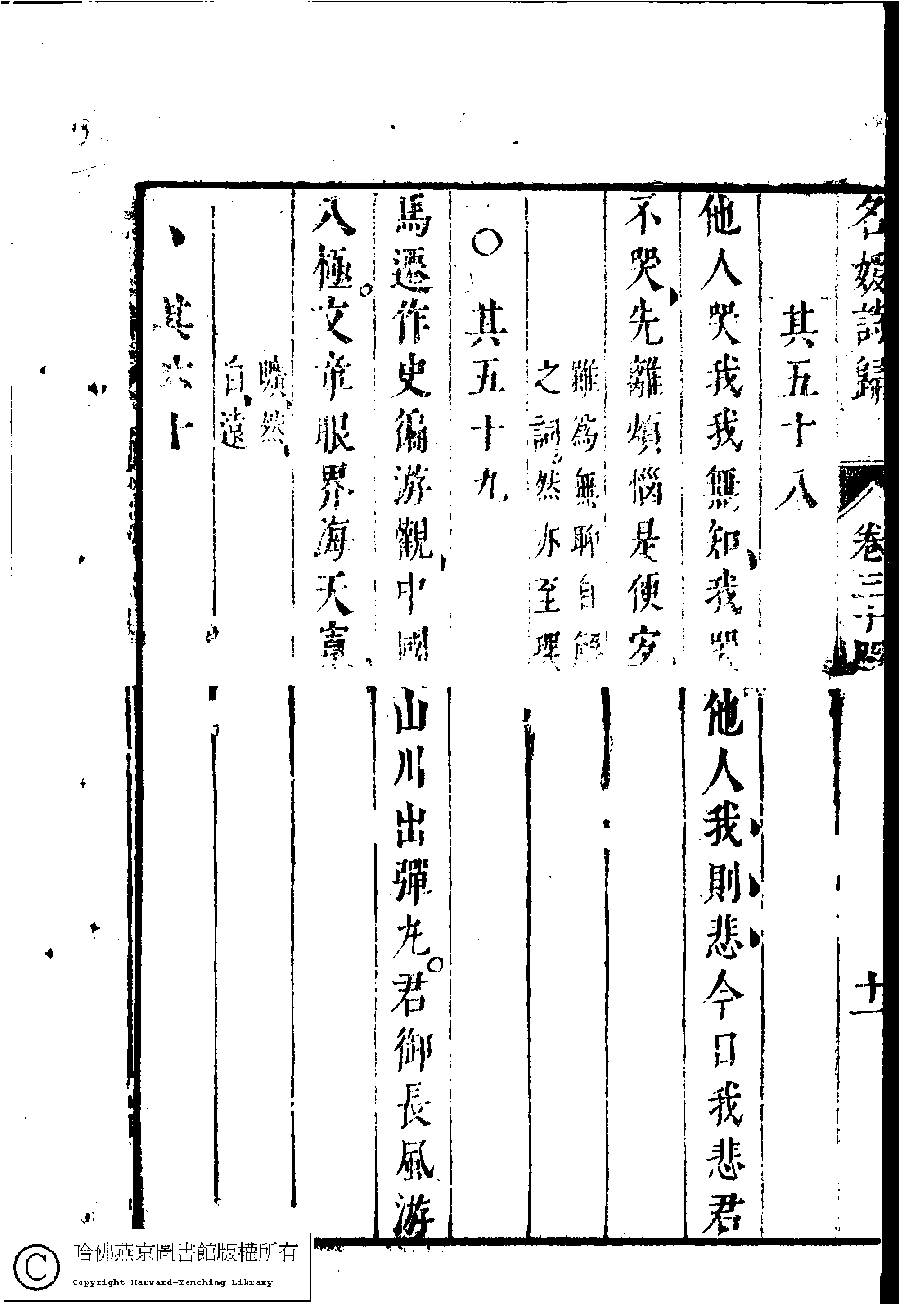 名媛詩歸
卷三十四
十一
其五十八
他人哭我我無知我哭他人我則悲今日我悲君
不哭先離煩惱是便宜
雖為無聊自解
之詞然亦至理
○其五十九
馬遷作史徧游觀中國山川出彈丸君御長風游
八極文章眼界海天寬
曠然
自遠
、其六十
哈佛燕京圖書館版權所有
Copyright Harvard-Yenching Library